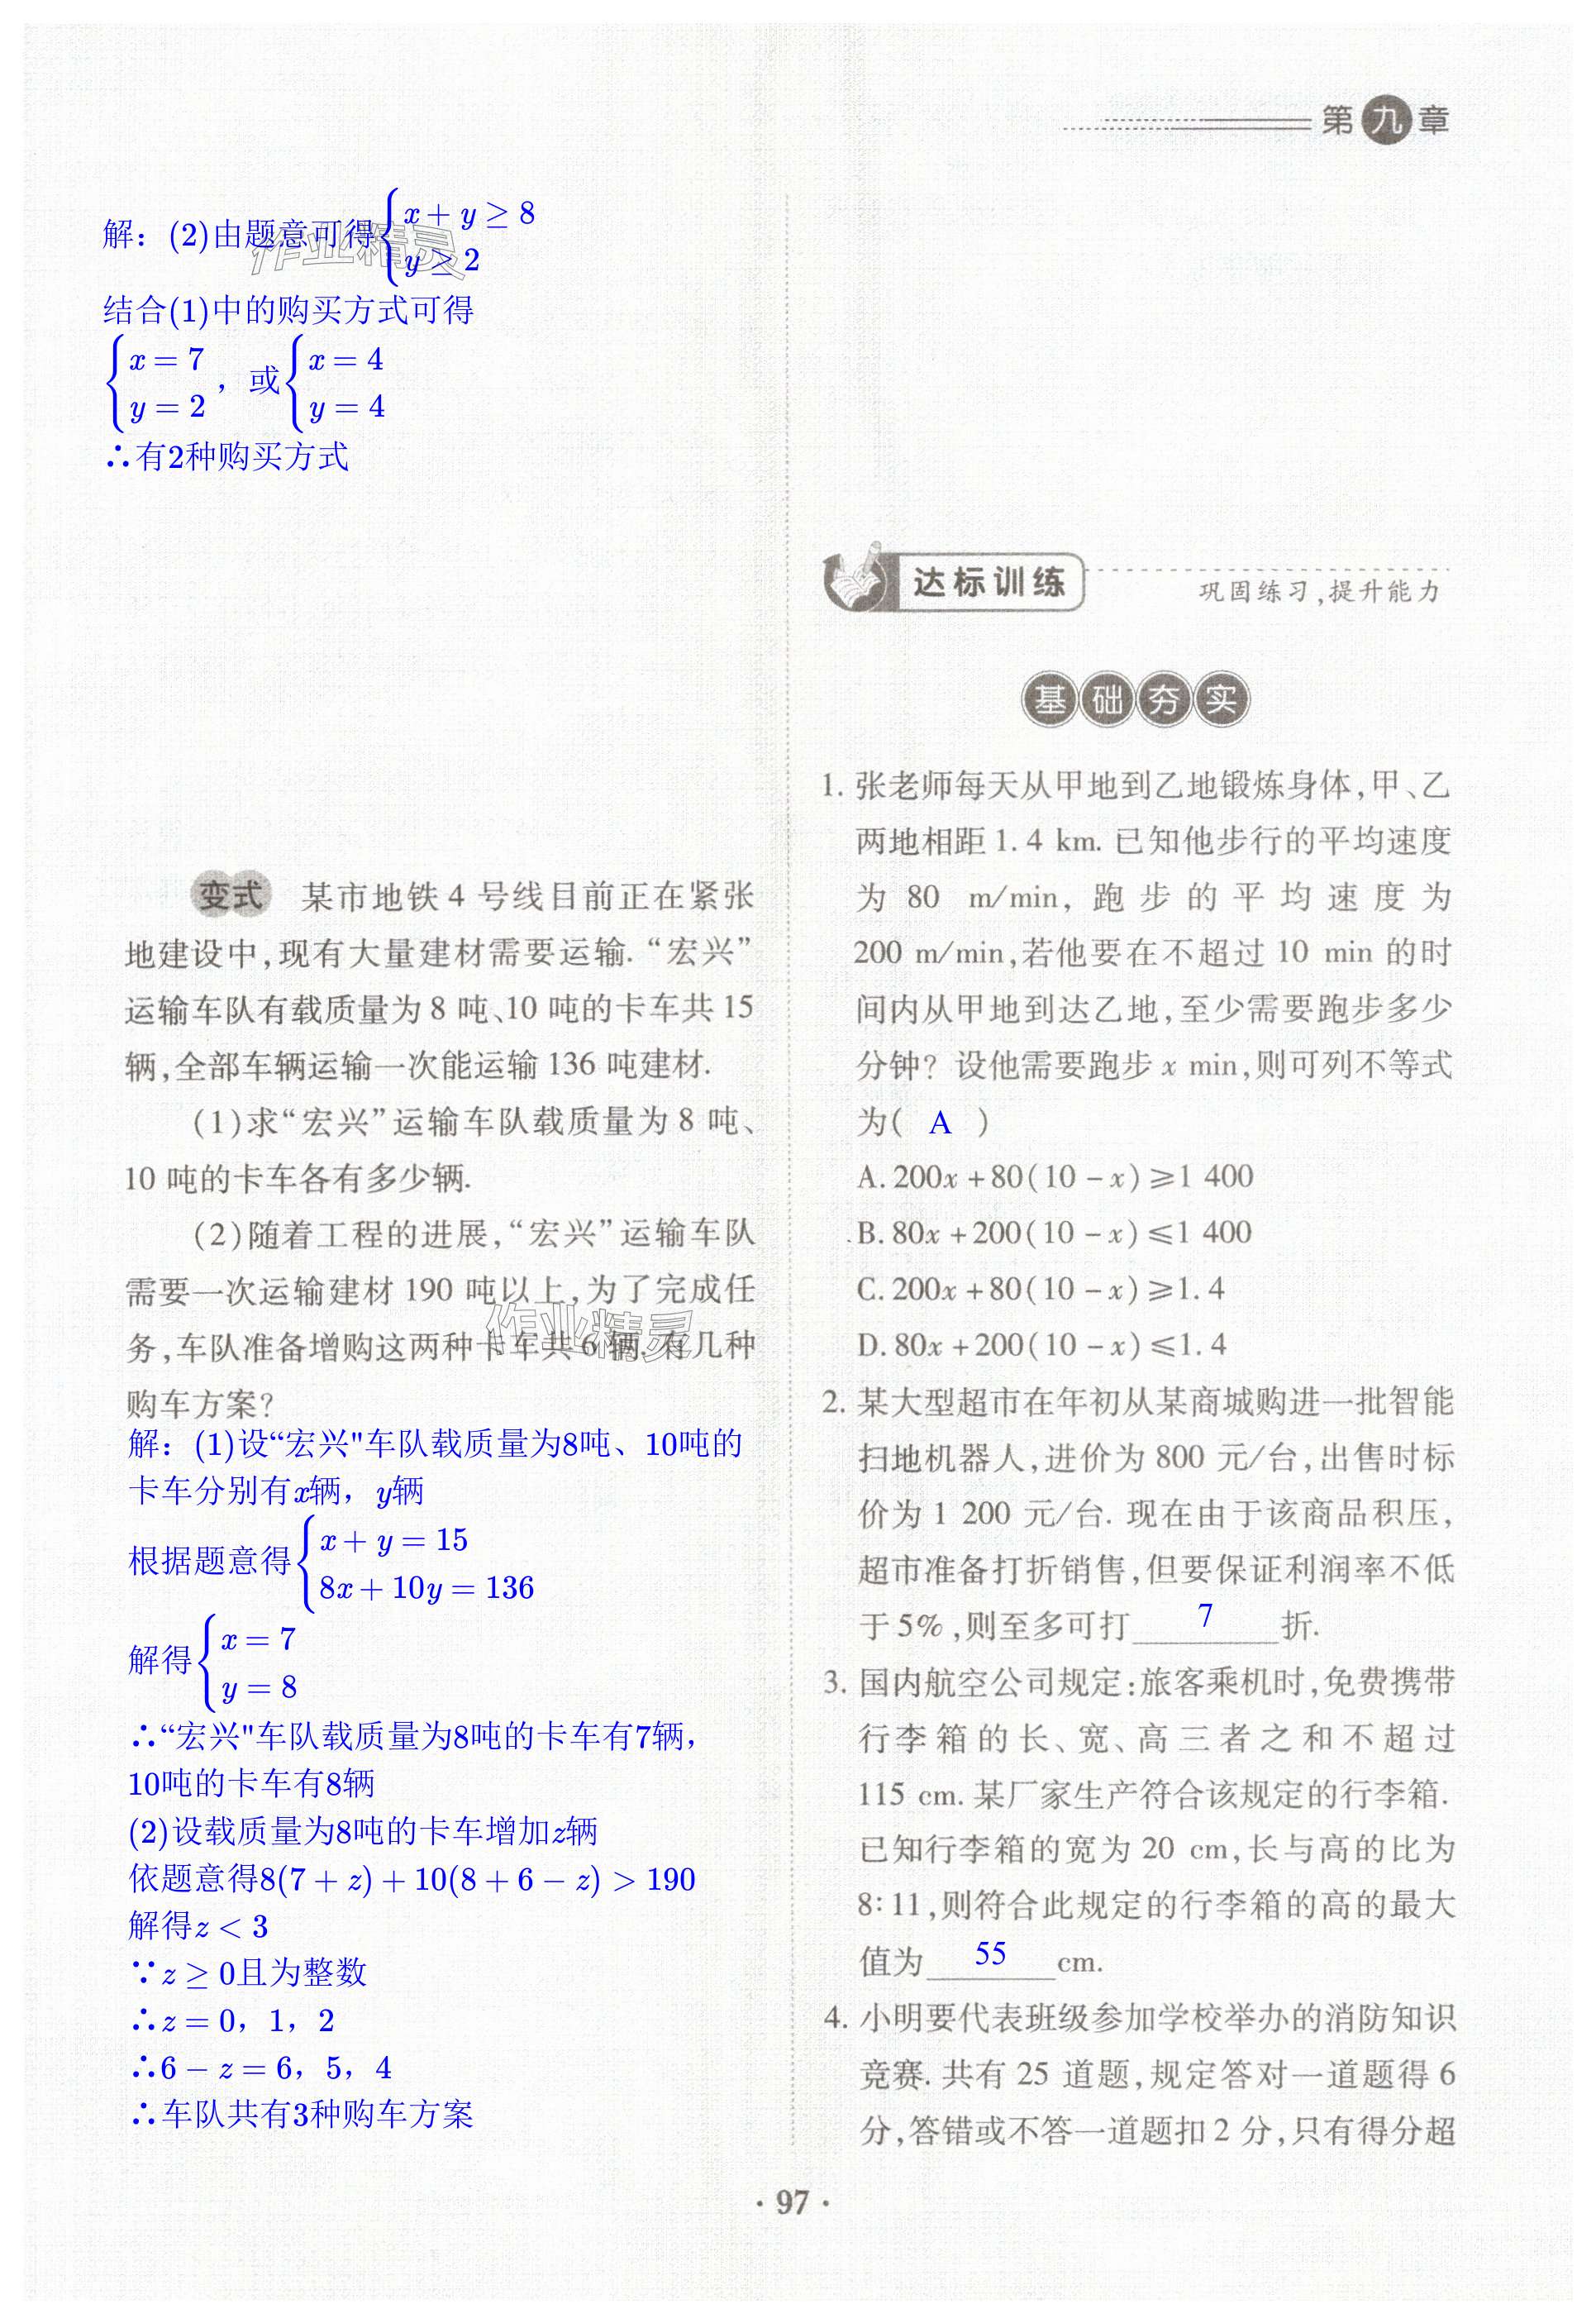 第九章
解：(2)由题意可得{x + y ≥ 8
y ≥ 2
结合(1)中的购买方式可得
{x = 7
y = 2，或{x = 4
y = 4
∴有2种购买方式
变式 某市地铁 4 号线目前正在紧张
地建设中,现有大量建材需要运输. “宏兴”
运输车队有载质量为 8 吨、10 吨的卡车共 15
辆,全部车辆运输一次能运输 136 吨建材.
(1)求“宏兴”运输车队载质量为 8 吨、
10 吨的卡车各有多少辆.
(2)随着工程的进展,“宏兴”运输车队
需要一次运输建材 190 吨以上,为了完成任
务,车队准备增购这两种卡车共 6 辆. 有几种
购车方案?
解：(1)设“宏兴"车队载质量为8吨、10吨的
卡车分别有x辆，y辆
根据题意得{x + y = 15
8x + 10y = 136
解得{x = 7
y = 8
∴“宏兴"车队载质量为8吨的卡车有7辆，
10吨的卡车有8辆
(2)设载质量为8吨的卡车增加z辆
依题意得8(7 + z) + 10(8 + 6 − z) > 190
解得z < 3
∵z ≥ 0且为整数
∴z = 0，1，2
∴6 − z = 6，5，4
∴车队共有3种购车方案
达标训练 巩固练习,提升能力
基础夯实
1. 张老师每天从甲地到乙地锻炼身体,甲、乙
两地相距 1. 4 km. 已知他步行的平均速度
为 80 m/min, 跑步的平均速度为
200 m/min,若他要在不超过 10 min 的时
间内从甲地到达乙地,至少需要跑步多少
分钟? 设他需要跑步 x min,则可列不等式
为( A )
A. 200x + 80(10 − x) ⩾ 1 400
B. 80x + 200(10 − x) ⩽ 1 400
C. 200x + 80(10 − x) ⩾ 1. 4
D. 80x + 200(10 − x) ⩽ 1. 4
2. 某大型超市在年初从某商城购进一批智能
扫地机器人,进价为 800 元/台,出售时标
价为 1 200 元/台. 现在由于该商品积压,
超市准备打折销售,但要保证利润率不低
于 5% ,则至多可打 7 折.
3. 国内航空公司规定:旅客乘机时,免费携带
行李箱的长、宽、高三者之和不超过
115 cm. 某厂家生产符合该规定的行李箱.
已知行李箱的宽为 20 cm,长与高的比为
8: 11,则符合此规定的行李箱的高的最大
值为 55 cm.
4. 小明要代表班级参加学校举办的消防知识
竞赛. 共有 25 道题,规定答对一道题得 6
分,答错或不答一道题扣 2 分,只有得分超
· 97 ·
作业精灵
作业精灵